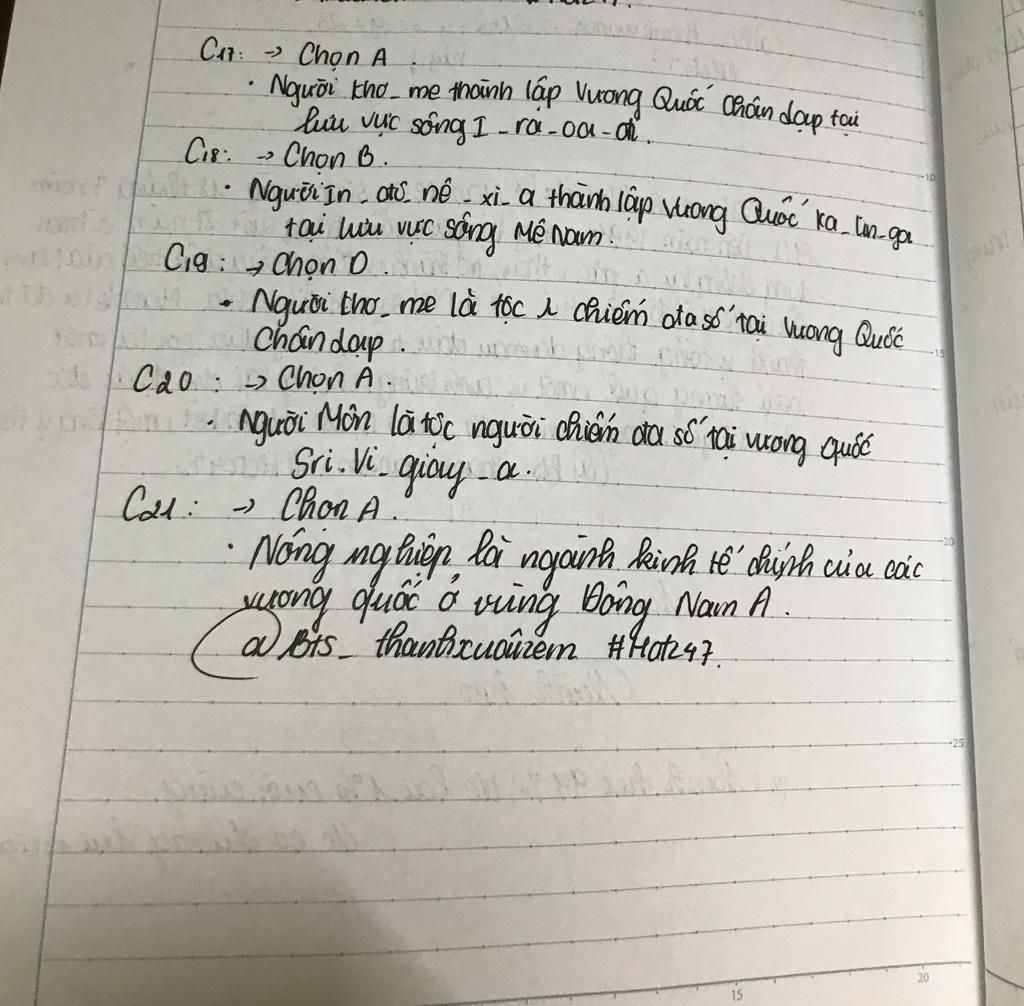 C17: → Chọn A.
• Người khơ_me thành lập Vương Quốc Chân dạp tại
lưu vực sông I_ra_oa_đi.
C18: → Chọn B.
• Người In_đô_nê_xi_a thành lập vương Quốc Ka_lin_ga
tại lưu vực sông Mê Nam.
C19: → Chọn D.
• Người khơ_me là tộc chiếm đa số tại vương Quốc
Chân dạp.
C20: → Chọn A.
• Người Môn là tộc người chiếm đa số tại vương quốc
Sri.Vi_giay_a.
C21: → Chọn A.
• Nông nghiệp là ngành kinh tế chính của các
vương quốc ở vùng Đông Nam A.
@Bts_thanhxuâncem #Hot247.